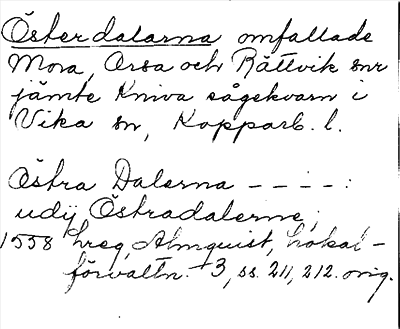 Österdalarna omfattade
Mora, Orsa och Rättvik snr
jämte Kniva sågekvarn i
Vika sn, Kopparb. l.
Östra Dalerna – – – – :
udij Östradalerne,
1558 hreg, Almquist, Lokal-
förvaltn. 3, ss. 211, 212. orig.